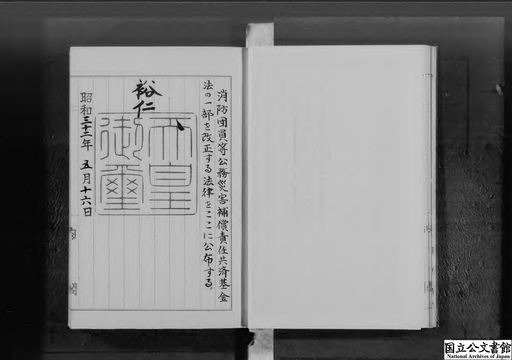 消防団員等公務災害補償責任共済基金
法の一部を改正する法律をここに公布する。
裕仁
天皇
御璽
昭和三十二年五月十六日
国立公文書館
National Archives of Japan